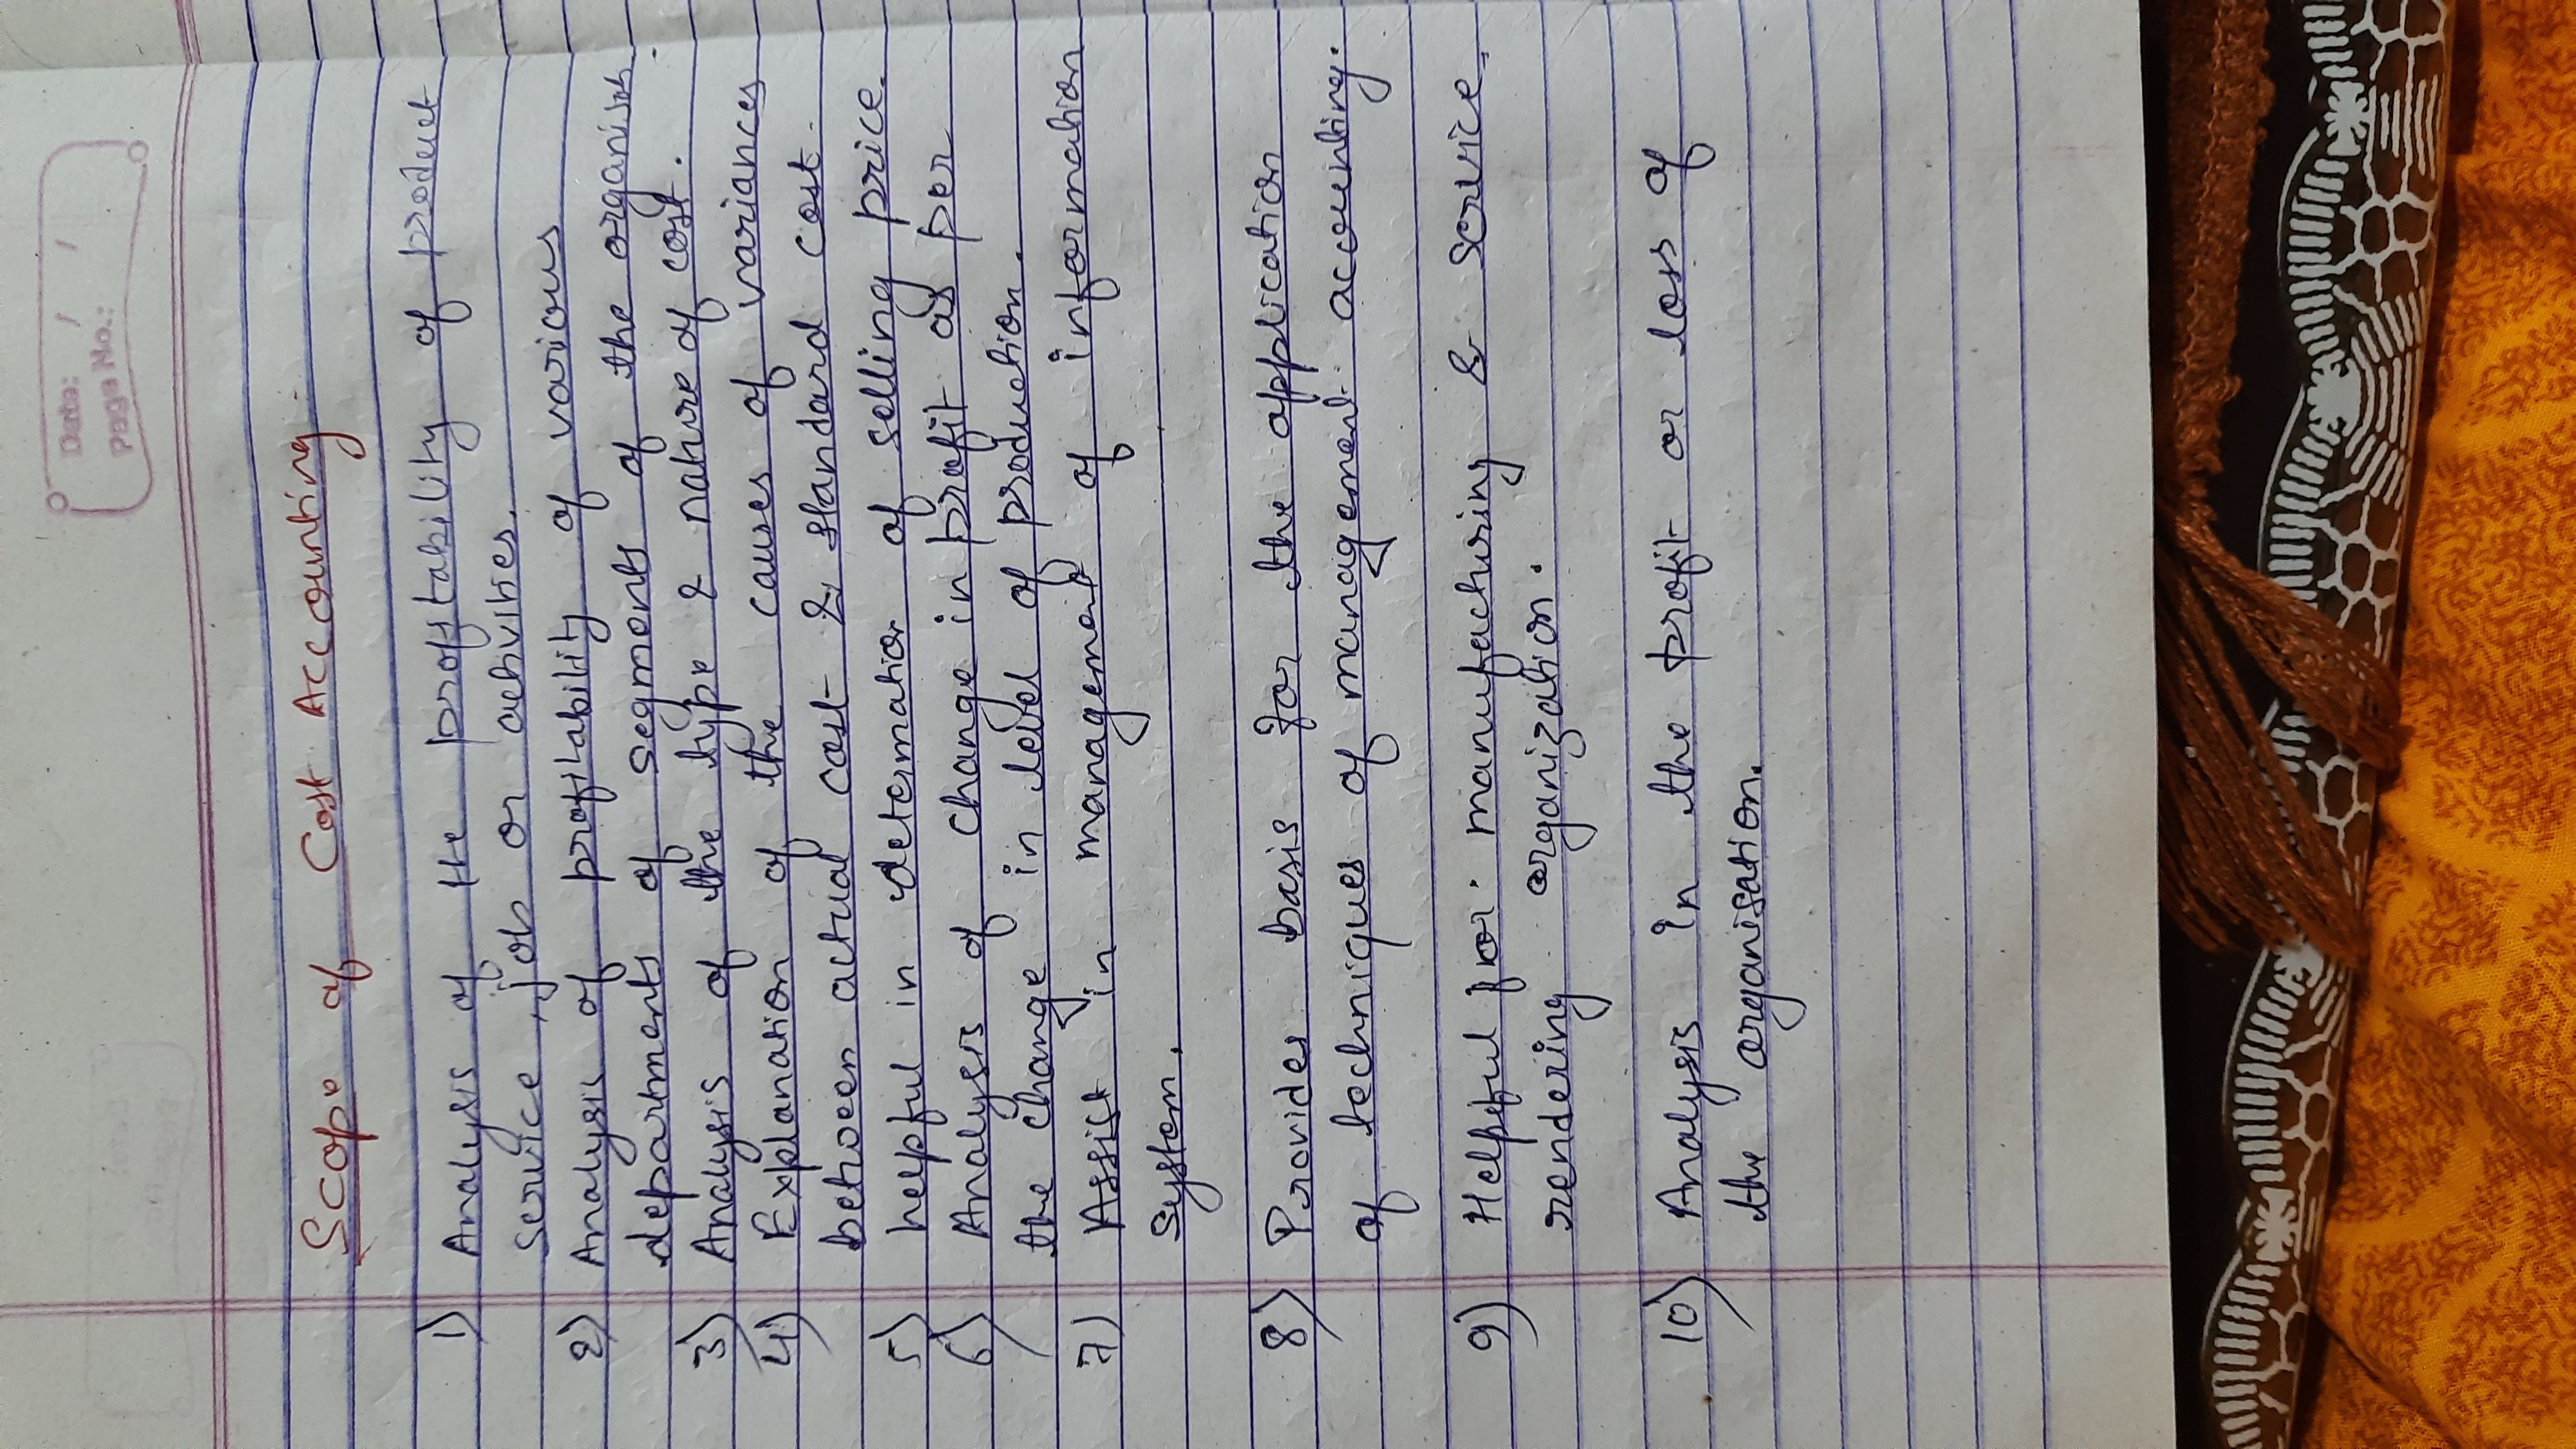 Data: / /
Page No.:
Scope of Cost Accounting
1) Analysis of the profitability of product
service, job or activities.
2) Analysis of profitability of various
departments of segments of the organisat
3) Analysis of the type & nature of cost.
4) Explanation of the causes of variances
between actual cost & standard cost.
5) helpful in determation of selling price.
6) Analysis of change in profit as per
the change in level of production.
7) Assist in management of information
system.
8) Provides basis for the application
of techniques of management accounting.
9) Helpful for manufacturing & service
rendering organization.
10) Analysis in the profit or loss of
the organisation.